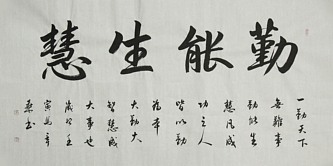 勤能生慧
一勤天下
無難事
勤能生
慧凡成
功之人
皆以勤
為本
大勤大
智慧成
大事也
歲次壬
寅年
書